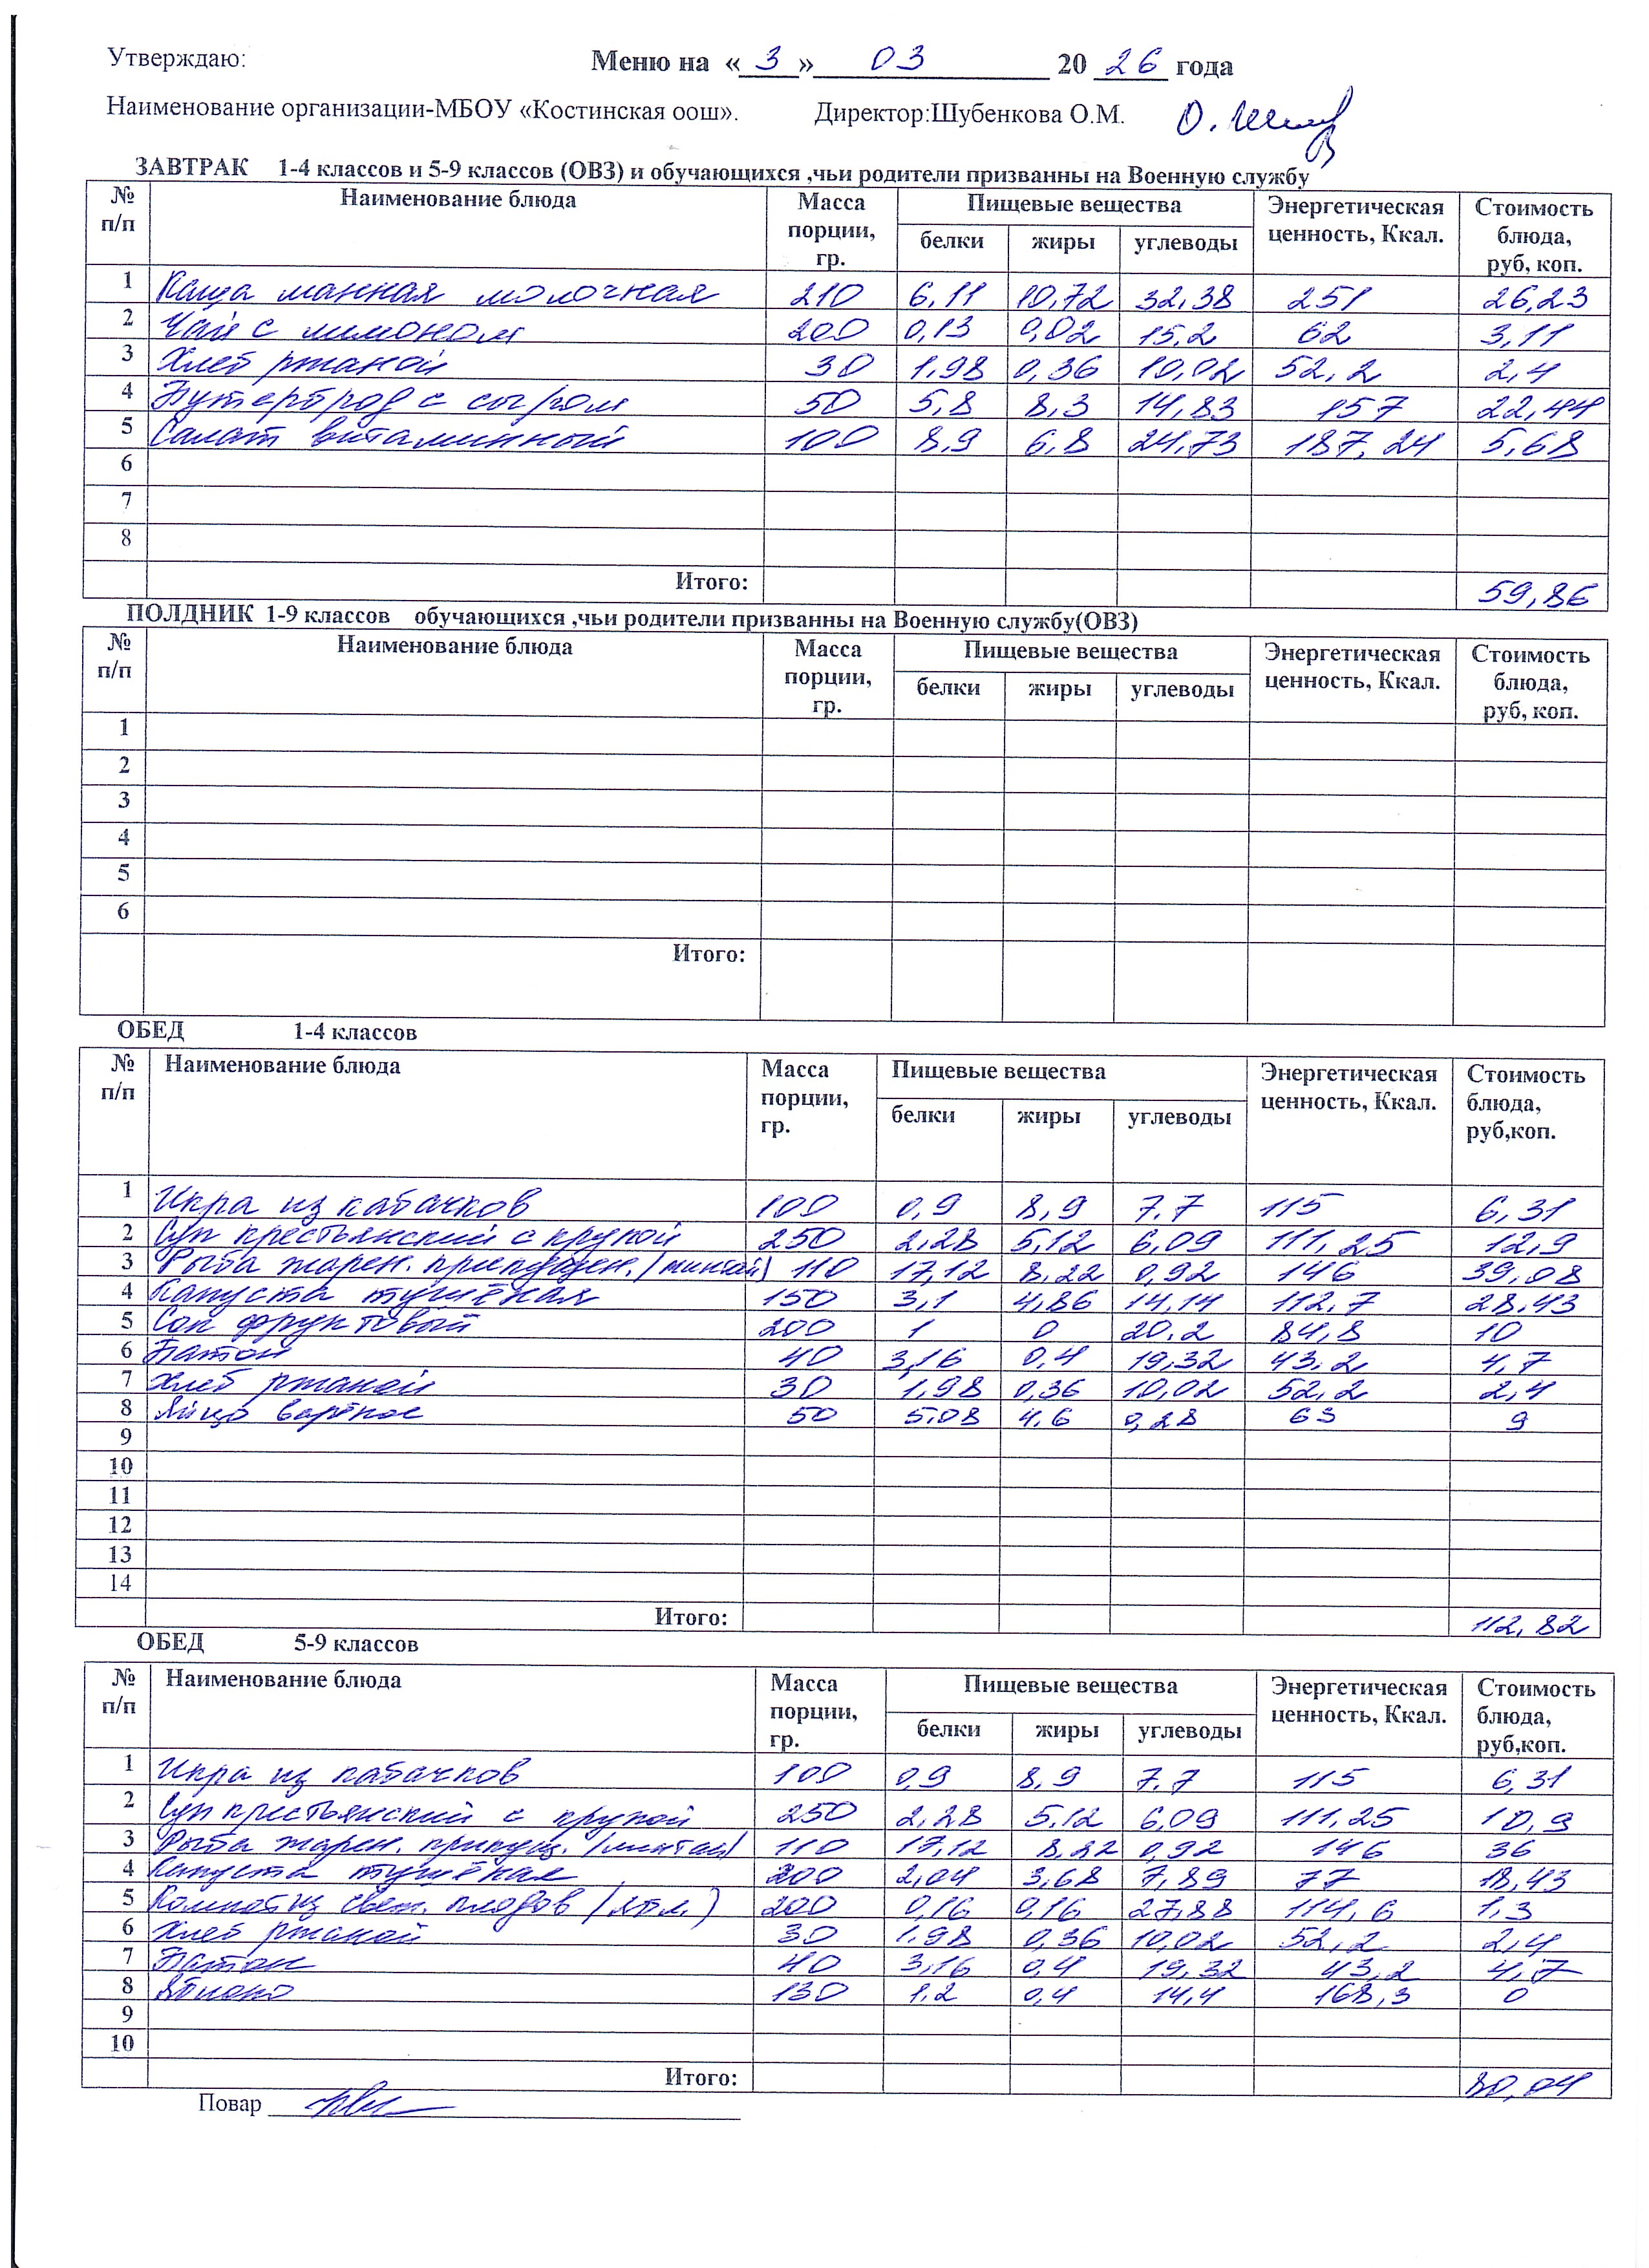 Утверждаю: Меню на «3» 03 2026 года
Наименование организации-МБОУ «Костинская оош». Директор:Шубенкова О.М.
ЗАВТРАК 1-4 классов и 5-9 классов (ОВЗ) и обучающихся ,чьи родители призванны на Военную службу
№ п/п Наименование блюда Масса порции, гр. Пищевые вещества Энергетическая ценность, Ккал. Стоимость блюда, руб, коп.
белки жиры углеводы
1 Каша манная молочная 210 6,11 10,72 32,38 251 26,23
2 Чай с лимоном 200 0,13 0,02 15,2 62 3,11
3 Хлеб ржаной 30 1,98 0,36 10,02 52,2 2,4
4 Бутерброд с сыром 50 5,8 8,3 14,83 157 22,44
5 Салат витаминный 100 8,9 6,8 24,73 187,24 5,68
6
7
8
Итого: 59,86
ПОЛДНИК 1-9 классов обучающихся ,чьи родители призванны на Военную службу(ОВЗ)
№ п/п Наименование блюда Масса порции, гр. Пищевые вещества Энергетическая ценность, Ккал. Стоимость блюда, руб, коп.
белки жиры углеводы
1
2
3
4
5
6
Итого:
ОБЕД 1-4 классов
№ п/п Наименование блюда Масса порции, гр. Пищевые вещества Энергетическая ценность, Ккал. Стоимость блюда, руб,коп.
белки жиры углеводы
1 Икра из кабачков 100 0,9 8,9 7.7 115 6,31
2 Суп крестьянский с крупой 250 2,28 5,12 6,09 111,25 12,9
3 Рыба жарен. (минтай) 110 17,12 8,22 0,92 146 39,08
4 Капуста тушёная 150 3,1 4,86 14,14 112,7 28,43
5 Сок фруктовый 200 1 0 20.2 84,8 10
6 Батон 40 3,16 0,4 19,32 43,2 4,7
7 Хлеб ржаной 30 1,98 0,36 10,02 52,2 2,4
8 Яйцо варёное 50 5,08 4,6 0,28 63 9
9
10
11
12
13
14
Итого: 112,82
ОБЕД 5-9 классов
№ п/п Наименование блюда Масса порции, гр. Пищевые вещества Энергетическая ценность, Ккал. Стоимость блюда, руб,коп.
белки жиры углеводы
1 Икра из кабачков 100 0,9 8,9 7.7 115 6,31
2 Суп крестьянский с крупой 250 2,28 5,12 6,09 111,25 10,9
3 Рыба жарен. припущ. (минтай) 110 17,12 8,22 0,92 146 36
4 Капуста тушёная 200 2,04 3,68 7,89 77 18,43
5 Компот из свеж. плодов (ябл.) 200 0,16 0,16 27,88 114,6 1,3
6 Хлеб ржаной 30 1,98 0,36 10,02 52,2 2,4
7 Батон 40 3,16 0,4 19,32 43,2 4,7
8 Яблоко 130 1,2 0,4 14,4 168,3 0
9
10
Итого: 80,04
Повар